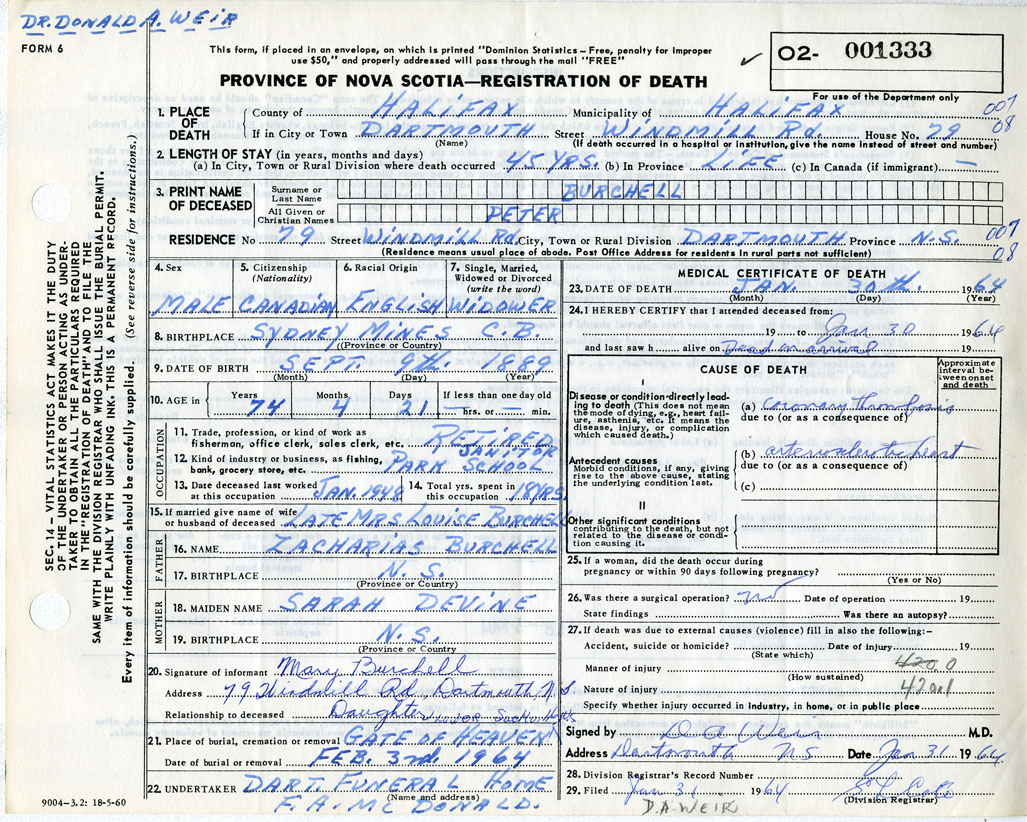 DR. DONALD A. WEIR
FORM 6
This form, if placed in an envelope, on which is printed "Dominion Statistics – Free, penalty for improper
use $50," and properly addressed will pass through the mail "FREE"
PROVINCE OF NOVA SCOTIA—REGISTRATION OF DEATH
✓ 02- 001333
For use of the Department only
1. PLACE OF DEATH { County of HALIFAX Municipality of HALIFAX 007
If in City or Town DARTMOUTH Street WINDMILL RD. House No. 79 08
(Name) (If death occurred in a hospital or institution, give the name instead of street and number)
2. LENGTH OF STAY (in years, months and days)
(a) In City, Town or Rural Division where death occurred 45 YRS. (b) In Province LIFE (c) In Canada (if immigrant) —
3. PRINT NAME OF DECEASED
Surname or Last Name BURCHELL
All Given or Christian Names PETER
RESIDENCE No 79 Street WINDMILL RD. City, Town or Rural Division DARTMOUTH Province N.S. 007
08
(Residence means usual place of abode. Post Office Address for residents in rural parts not sufficient)
4. Sex MALE
5. Citizenship (Nationality) CANADIAN
6. Racial Origin ENGLISH
7. Single, Married, Widowed or Divorced (write the word) WIDOWER
8. BIRTHPLACE SYDNEY MINES C.B.
(Province or Country)
9. DATE OF BIRTH SEPT. 9th. 1889
(Month) (Day) (Year)
10. AGE in { Years 74 Months 4 Days 21 If less than one day old — hrs. or — min.
OCCUPATION
11. Trade, profession, or kind of work as
fisherman, office clerk, sales clerk, etc. RETIRED
JANITOR
12. Kind of industry or business, as fishing,
bank, grocery store, etc. PARK SCHOOL
13. Date deceased last worked
at this occupation JAN. 1948
14. Total yrs. spent in
this occupation 18 YRS.
15. If married give name of wife
or husband of deceased LATE MRS LOUISE BURCHELL
FATHER
16. NAME ZACHARIAS BURCHELL
17. BIRTHPLACE N.S.
(Province or Country)
MOTHER
18. MAIDEN NAME SARAH DEVINE
19. BIRTHPLACE N.S.
(Province or Country)
20. Signature of informant Mary Burchell
Address 79 Windmill Rd, Dartmouth, N.S.
Relationship to deceased Daughter
21. Place of burial, cremation or removal GATE OF HEAVEN
Date of burial or removal FEB. 3rd. 1964
22. UNDERTAKER DART. FUNERAL HOME
(Name and address)
F.A. McDONALD.
9004-3.2: 18-5-60
SEC. 14 – VITAL STATISTICS ACT MAKES IT THE DUTY
OF THE UNDERTAKER OR PERSON ACTING AS UNDER-
TAKER TO OBTAIN ALL THE PARTICULARS REQUIRED
IN THE "REGISTRATION OF DEATH" AND TO FILE THE
SAME WITH THE DIVISION REGISTRAR WHO SHALL ISSUE THE BURIAL PERMIT.
WRITE PLAINLY WITH UNFADING INK. THIS IS A PERMANENT RECORD.
Every item of information should be carefully supplied. (See reverse side for instructions.)
MEDICAL CERTIFICATE OF DEATH
23. DATE OF DEATH JAN. 30th. 1964
(Month) (Day) (Year)
24. I HEREBY CERTIFY that I attended deceased from:
19 to Jan 30 1964
and last saw h alive on Dead on arrival 19
CAUSE OF DEATH
Approximate interval between onset and death
I
Disease or condition directly lead-
ing to death (This does not mean
the mode of dying, e.g., heart fail-
ure, asthenia, etc. It means the
disease, injury, or complication
which caused death.)
(a) coronary thrombosis
due to (or as a consequence of)
Antecedent causes
Morbid conditions, if any, giving
rise to the above cause, stating
the underlying condition last.
(b) arteriosclerotic heart
due to (or as a consequence of)
(c)
II
Other significant conditions
contributing to the death, but not
related to the disease or condi-
tion causing it.
25. If a woman, did the death occur during
pregnancy or within 90 days following pregnancy?
(Yes or No)
26. Was there a surgical operation? no Date of operation 19
State findings Was there an autopsy?
27. If death was due to external causes (violence) fill in also the following:–
Accident, suicide or homicide? Date of injury 19
(State which)
Manner of injury 420 0
(How sustained)
Nature of injury 4201
Specify whether injury occurred in industry, in home, or in public place
Signed by D A Weir M.D.
Address Dartmouth NS Date Jan 31 1964
28. Division Registrar's Record Number
29. Filed Jan 31 1964
(Division Registrar)
D.A. WEIR